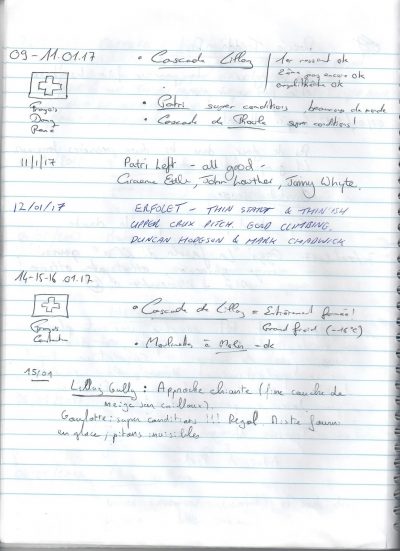 09-11.01.17
• Cascade Lillaz
1er ressaut ok
2ème pas encore ok
• Patri super conditions beaucoup de monde
• Cascade de super conditions!
François
Dany
René
11/1/17
Patri Left - all good -
Graeme John Lowther, Jonny Whyte.
12/01/17
ERFOLET - THIN START & THIN ISH
UPPER CRUX PITCH. GOOD CLIMBING.
DUNCAN HODGSON & MARK CHADWICK
14-15-16 01.17
François
• Cascade de Lillaz = Entièrement formée!
Grand froid (-15°C)
• à - ok
15/01
Lillaz Gully : Approche chiante (fine couche de
neige sur cailloux).
Goulotte: super conditions !!! Régal
en glace, pitons invisibles